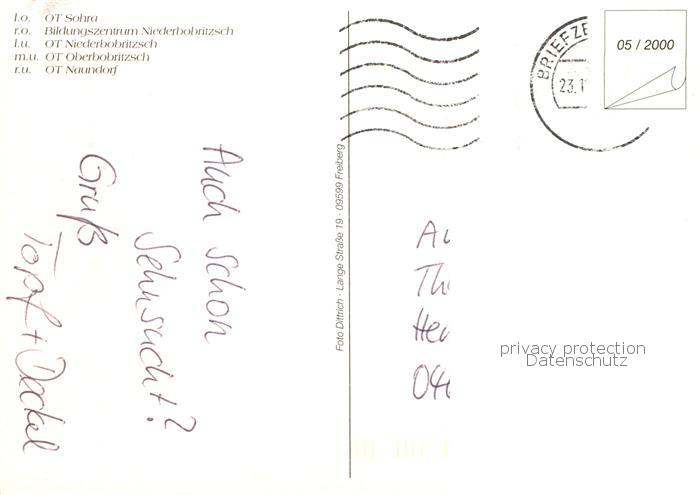 l.o. OT Sohra
r.o. Bildungszentrum Niederbobritzsch
l.u. OT Niederbobritzsch
m.u. OT Oberbobritzsch
r.u. OT Naundorf
Auch schon
Sehnsucht?
Gruß
Topf + Deckel
Foto Dittrich · Lange Straße 19 · 09599 Freiberg
BRIEFZE
23.1
05 / 2000
Au
Th
He
04
privacy protection
Datenschutz